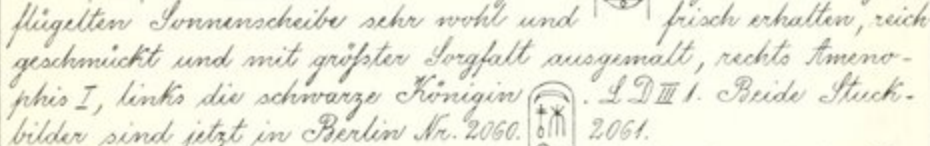 flügelten Sonnenscheibe sehr wohl und frisch erhalten, reich
geschmückt und mit größter Sorgfalt ausgemalt, rechts Ameno-
phis I, links die schwarze Königin . L D III 1. Beide Stuck-
bilder sind jetzt in Berlin Nr. 2060. 2061.